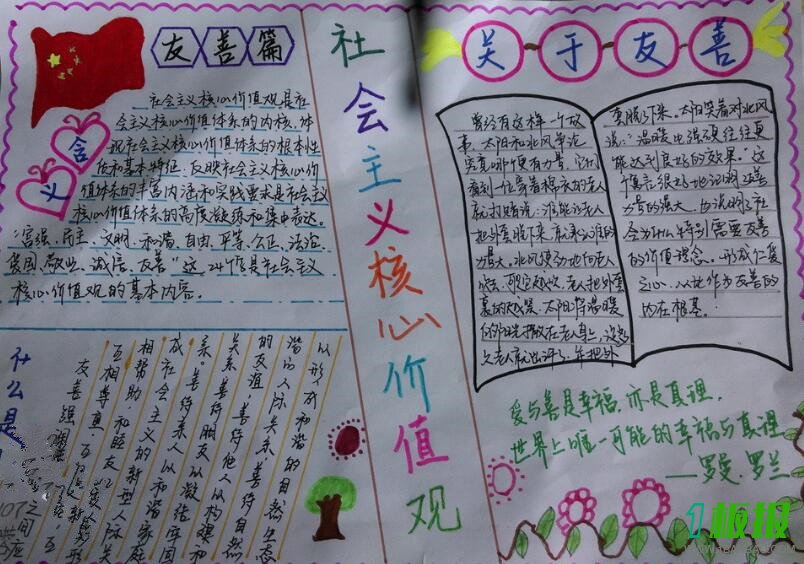 友善篇
含义
社会主义核心价值观是社
会主义核心价值体系的内核,体
现社会主义核心价值体系的根本性
质和基本特征,反映社会主义核心价
值体系的丰富内涵和实践要求是社会主义
核心价值体系的高度凝练和集中表达。
"富强、民主、文明、和谐、自由、平等、公正、法治、
爱国、敬业、诚信、友善"这24个字是社会主义
核心价值观的基本内容。
什么是
友善强调
互相尊重、互
相帮助,和睦友
成社会主义的新型人际关
系。善待亲人以和谐家庭
关系,善待朋友以凝结牢固
的友谊,善待他人以构建和
谐的人际关系,善待自然
以形成和谐的自然生态
社会主义核心价值观
关于友善
曾经有这样一个故
事,太阳和北风争论
究竟哪个更有力量,它们
看到一位穿着棉衣的老人
就打赌说:谁能让老人
把外套脱下来,就承认谁的
力量大。北风使劲地向老人
老人把外套
裹的
太阳将温暖
的阳光撒在老人身上,没多
久老人就出汗了,并把外
套脱下来。太阳笑着对北风
说:"温暖比强硬往往更
能达到良好的效果。"这
个寓言很好地说明了友善
力量的强大,也说明了社
会为什么特别需要友善
的价值理念,形成仁爱
之心,以此作为友善的
内在根基.
爱与善是幸福,亦是真理,
世界上唯一可能的幸福与真理
——罗曼.罗兰
1板报